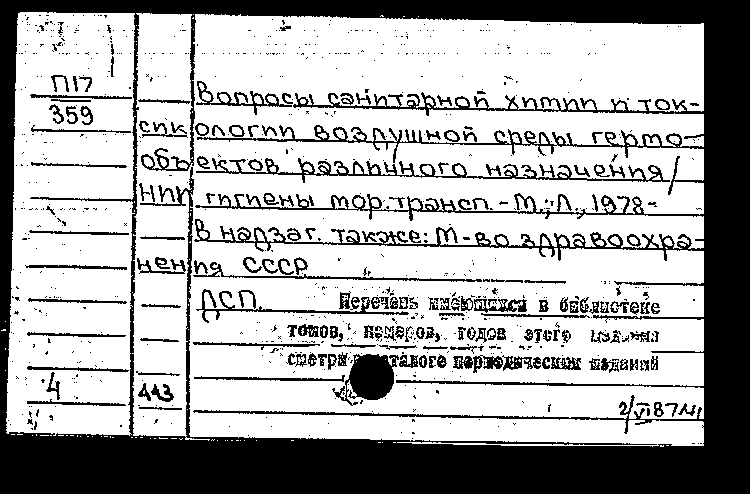 П17
359
Вопросы санитарной химии и ток-
сикологии воздушной среды гермо-
объектов различного назначения/
НИИ гигиены мор. трансп. - М.; Л., 1978-
В надзаг. также: М-во здравоохра-
нения СССР
ДСП.
Перечень имеющихся в библиотеке
томов, номеров, годов этого издания
смотри в каталоге периодических изданий
4
113
2/VI 87